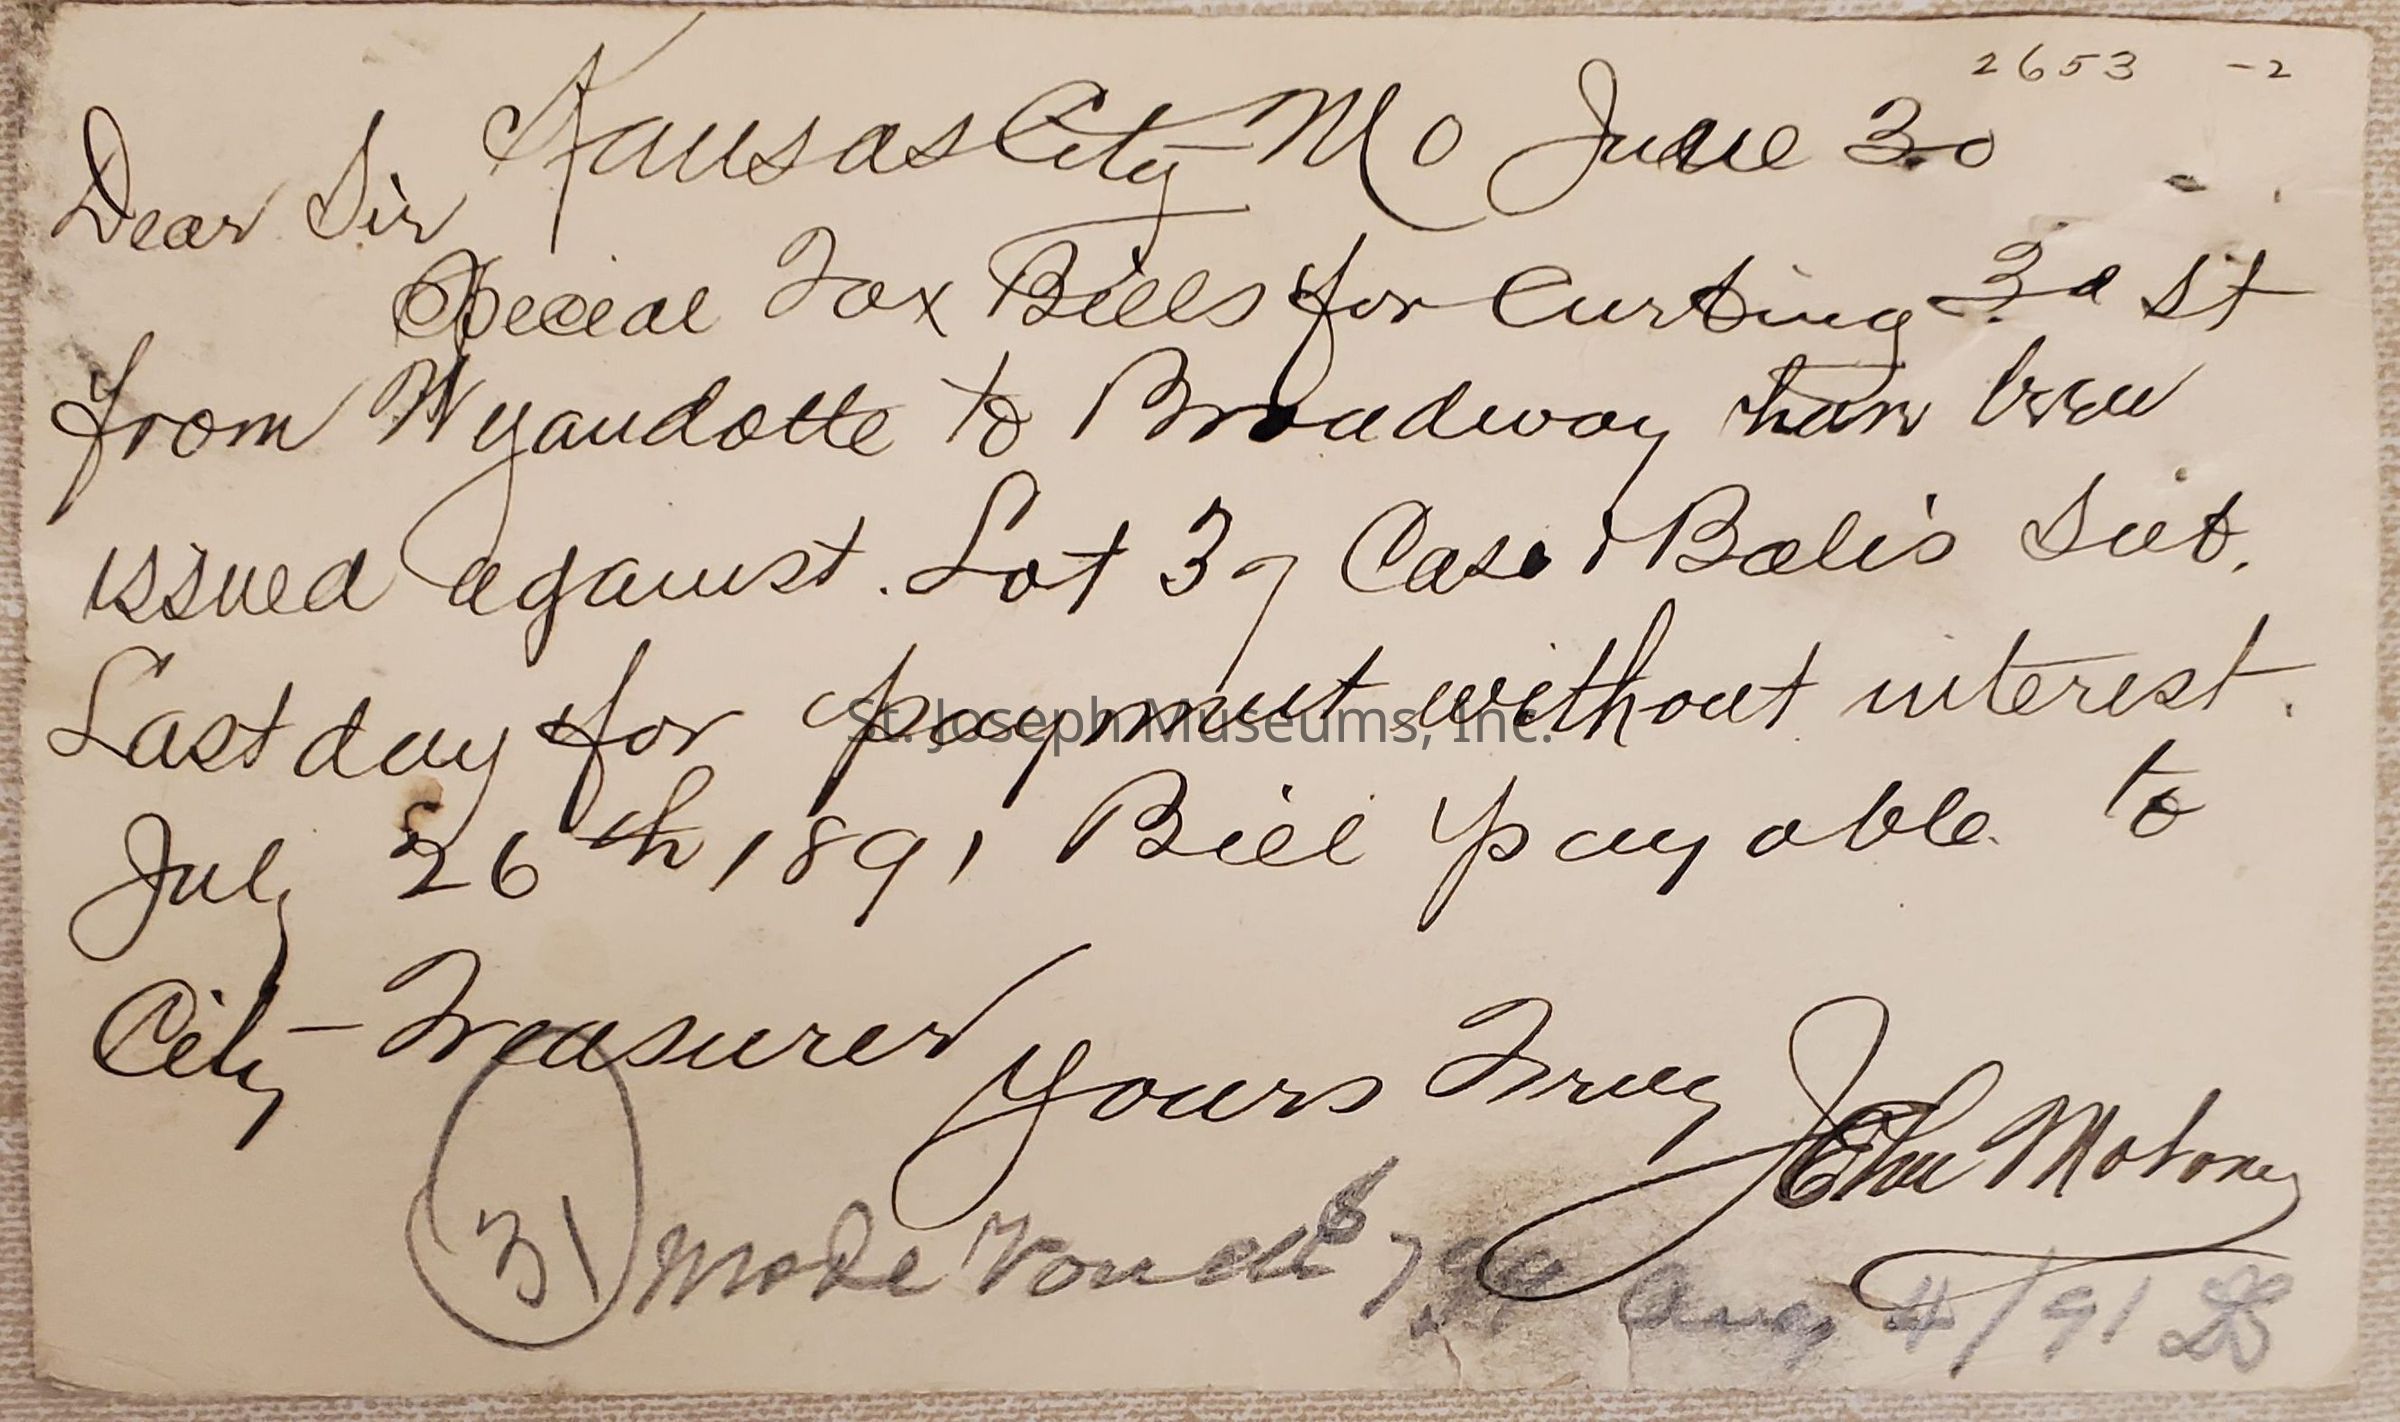 2653 -2
Kansas City Mo June 30
Dear Sir
Special Tax Bills for Curbing 3d St
from Wyandotte to Broadway have been
issued against. Lot 39 Case & Balis Sub.
Last day for paymut without interest.
St. Joseph Museums, Inc.
July 26th 1891 Bill payable to
City - Treasurer
Yours Truly John Moloney
31 Made Vouch Aug 4/91